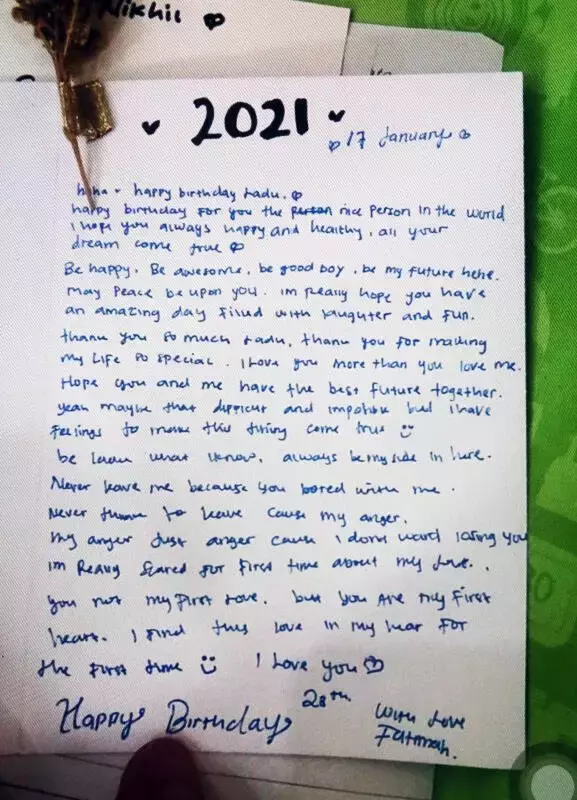 Nikhil ♥
♥ 2021 ♥
♡ 17 January ♡
happy birthday Ladu. ♡
happy birthday for you the nice person in the world
I hope you always happy and healthy, all your
dream come true ♡
Be happy. Be awesome, be good boy. be my future hehe.
May Peace be upon you. im really hope you have
an amazing day filled with laughter and fun.
thank you so much Ladu, thank you for making
my life so special. I Love you more than you love me.
Hope you and me have the best future together.
yeah maybe that difficult and but I have
feelings to make this thing come true :)
be what I know, always be my side in here.
Never leave me because you bored with me.
Never to leave cause my anger.
my anger just anger cause I dont losing you
im Really Scared for first time about my Love..
you not my first Love. but you are my first
heart. I find this love in my hear for
the first time :) I love you ♡
Happy Birthday 28th
With Love
Fatimah.